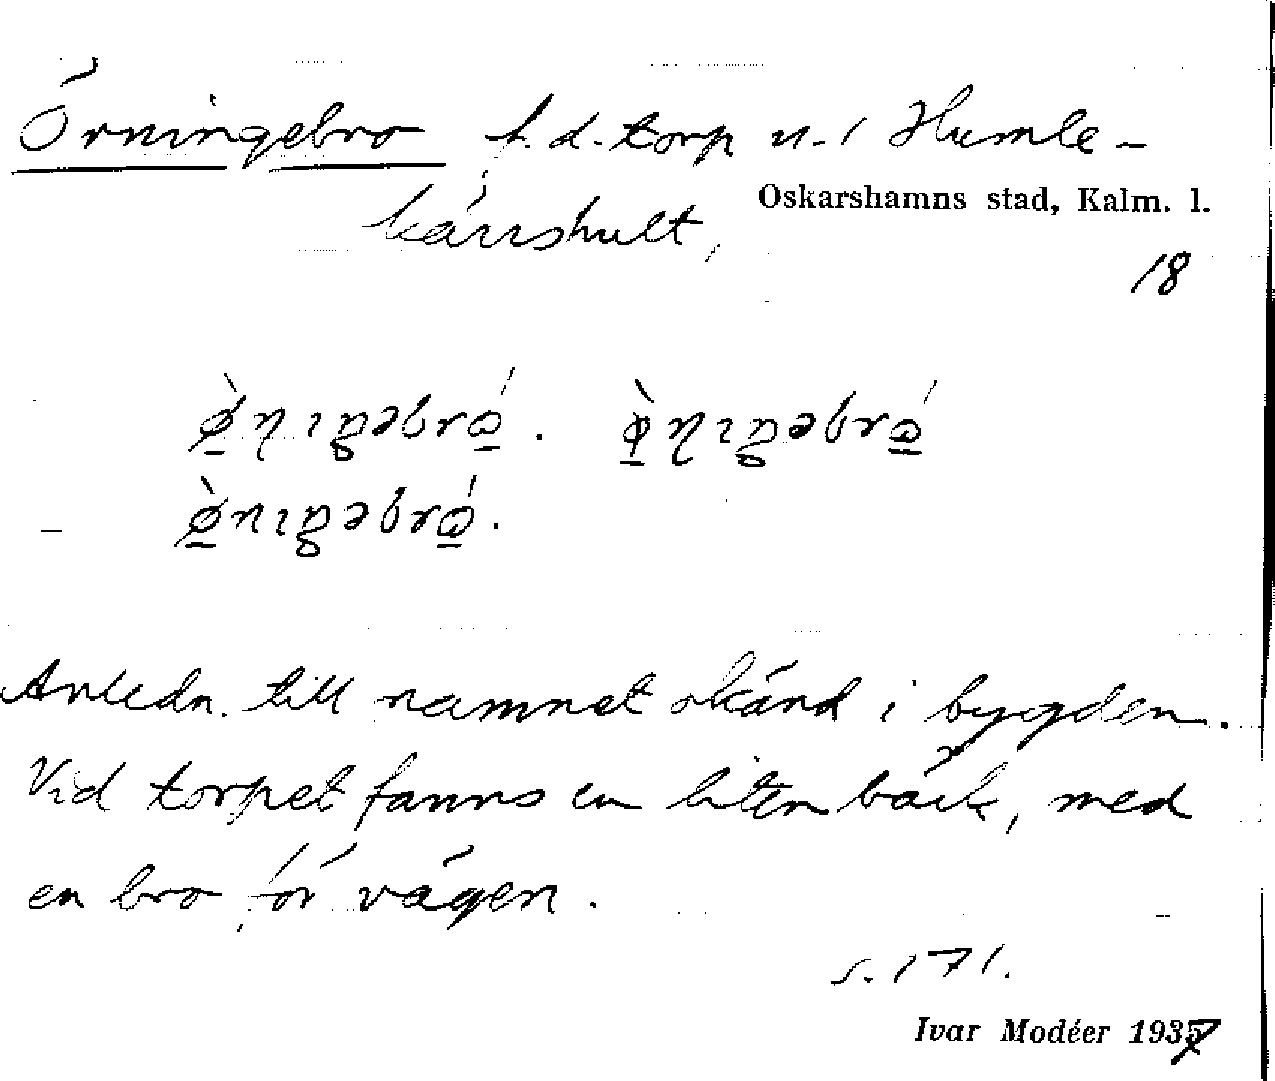 Örningebro f.d. torp u. 1 Humle-
Oskarshamns stad, Kalm. l.
kärrshult,
18
Anledn. till namnet okänd i bygden.
Vid torpet fanns en liten bäck, med
en bro för vägen.
s. 171.
Ivar Modéer 1937